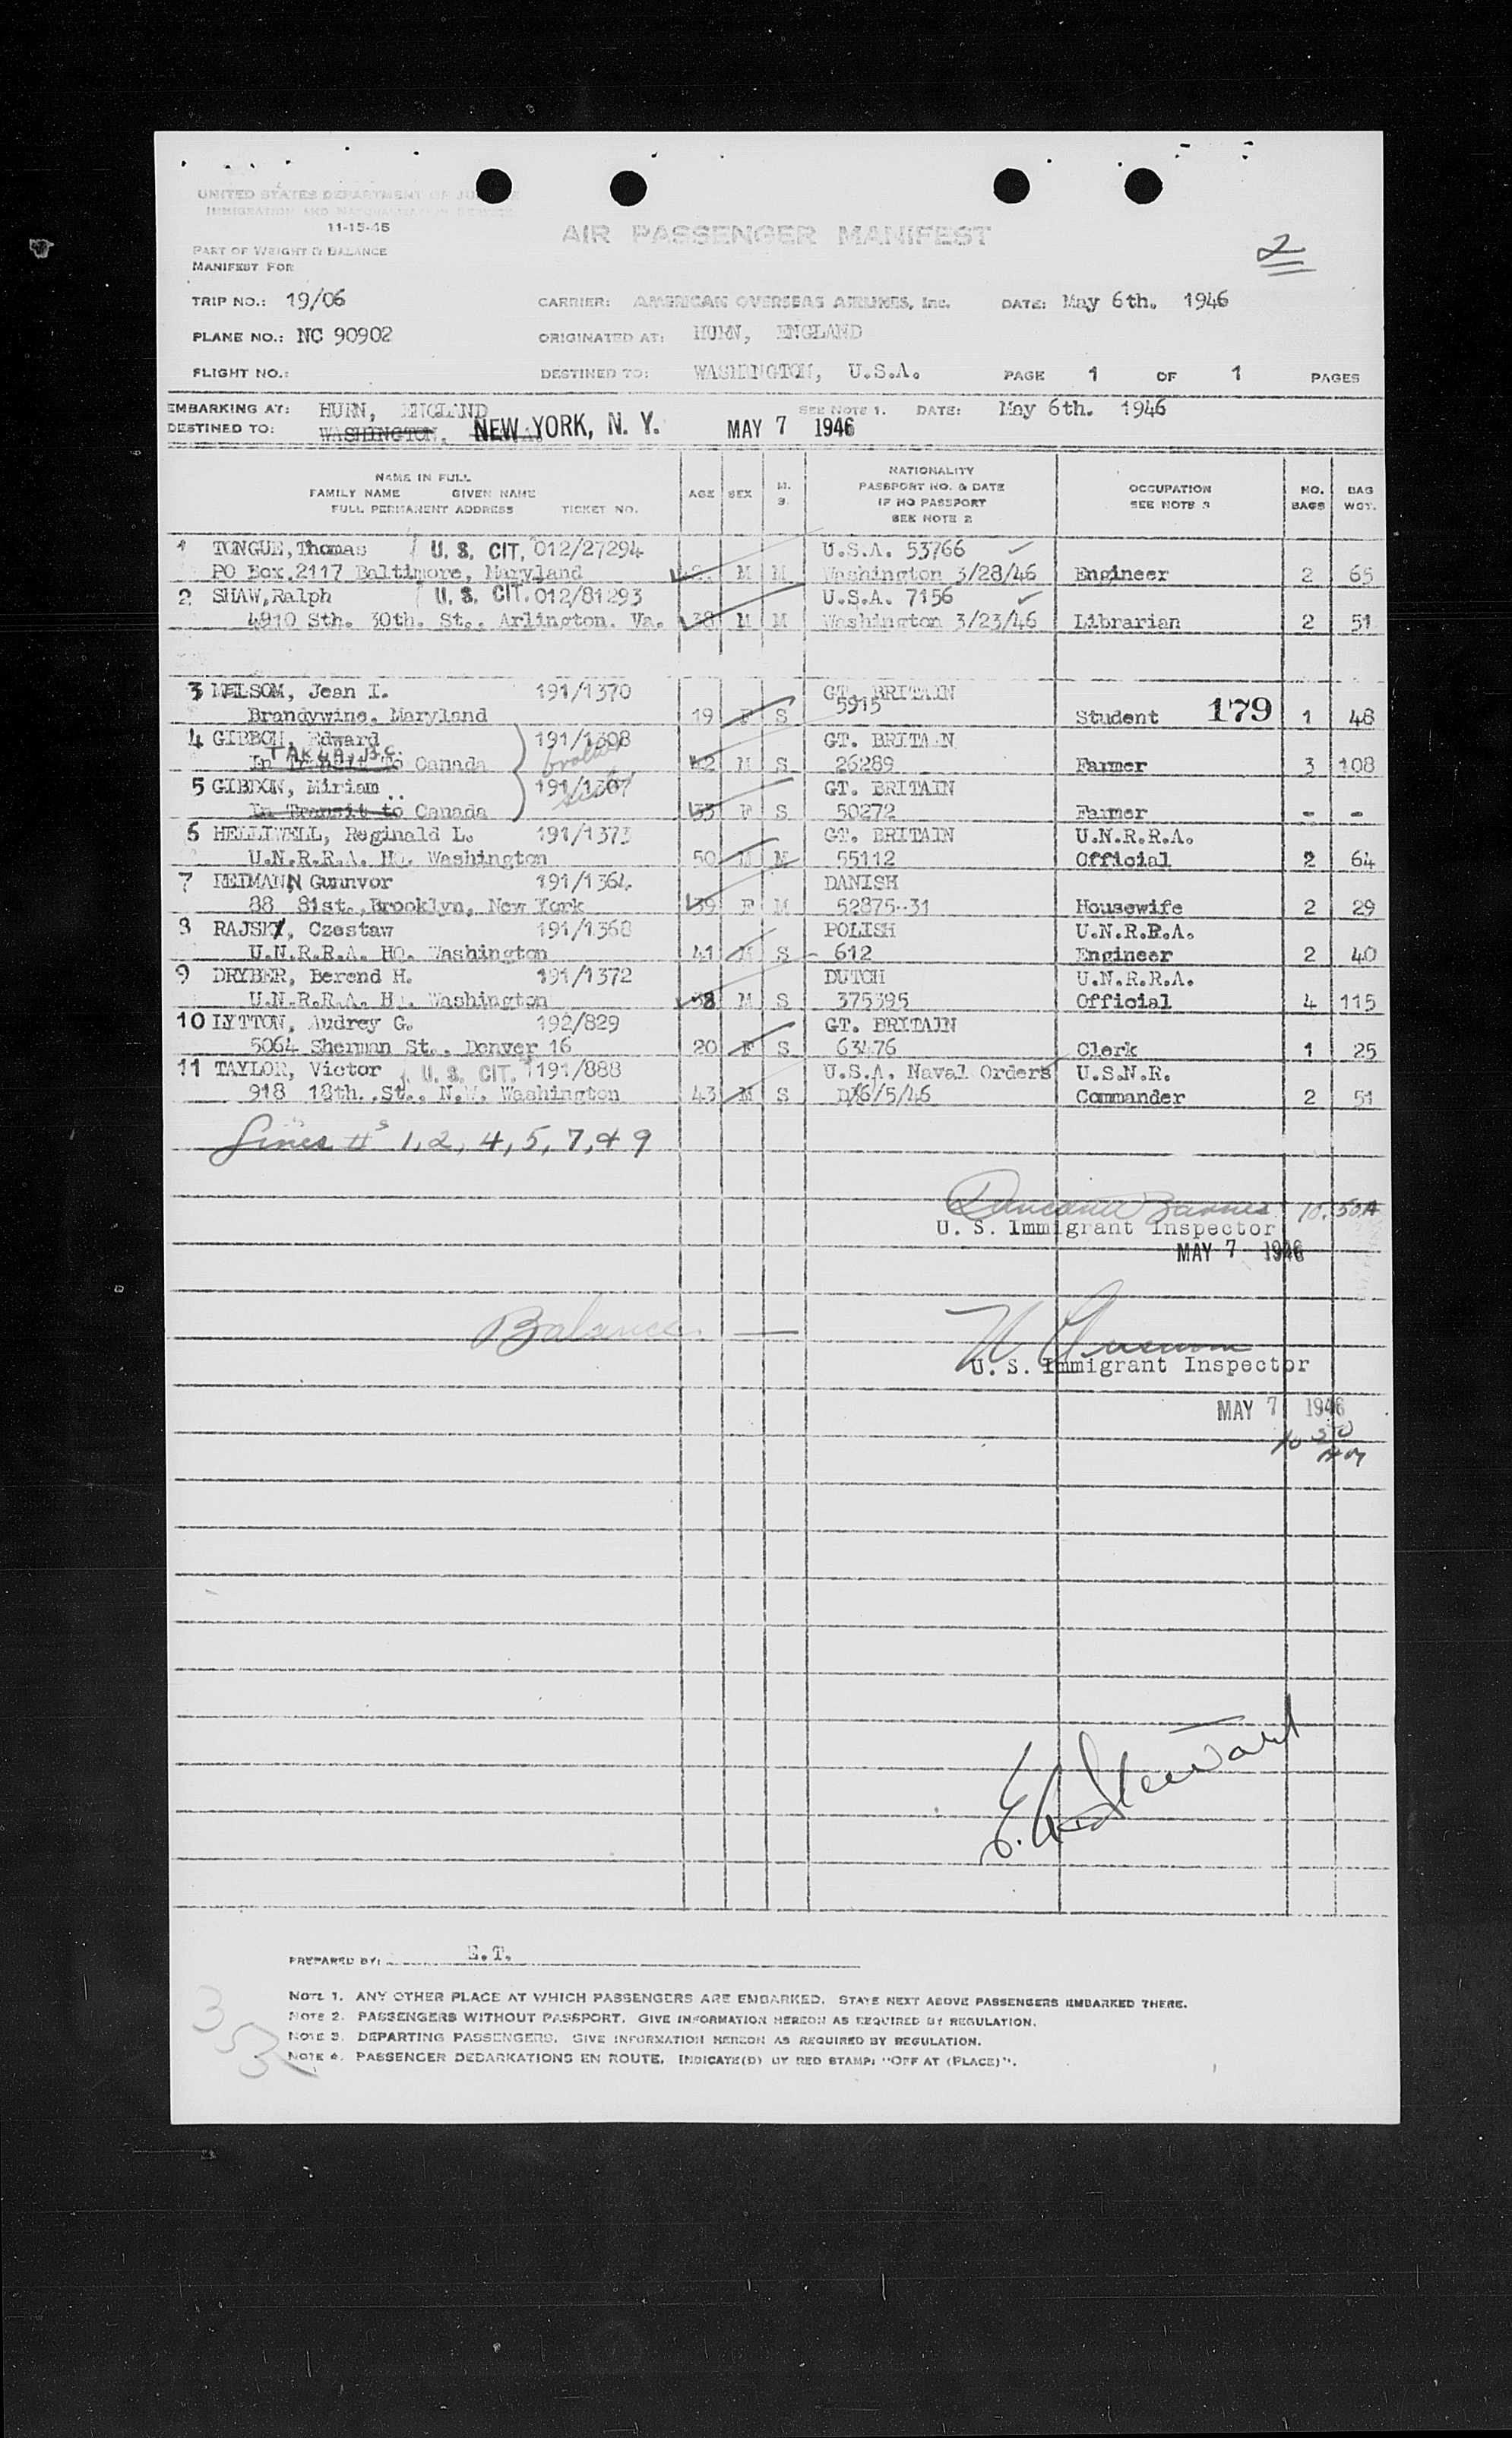 UNITED STATES DEPARTMENT OF JUSTICE
IMMIGRATION AND NATURALIZATION SERVICE
11-15-45
AIR PASSENGER MANIFEST
2
PART OF WEIGHT & BALANCE
MANIFEST FOR
TRIP NO.: 19/06 CARRIER: AMERICAN OVERSEAS AIRLINES, Inc. DATE: May 6th. 1946
PLANE NO.: NC 90902 ORIGINATED AT: HURN, ENGLAND
FLIGHT NO.: DESTINED TO: WASHINGTON, U.S.A. PAGE 1 OF 1 PAGES
EMBARKING AT: HURN, ENGLAND SEE NOTE 1. DATE: May 6th. 1946
DESTINED TO: WASHINGTON, NEW YORK, N. Y. MAY 7 1946
NAME IN FULL
FAMILY NAME GIVEN NAME
FULL PERMANENT ADDRESS TICKET NO. AGE SEX M. S. NATIONALITY PASSPORT NO. & DATE IF NO PASSPORT SEE NOTE 2 OCCUPATION SEE NOTE 3 NO. BAGS BAG WGT.
1 TONGUE, Thomas U. S. CIT. 012/27294 U.S.A. 53766
PO Box.2117 Baltimore, Maryland M M Washington 3/28/46 Engineer 2 65
2 SHAW, Ralph U. S. CIT. 012/81293 U.S.A. 7156
4910 Sth. 30th. St., Arlington. Va. 38 M M Washington 3/23/46 Librarian 2 51
3 MELSOM, Jean I. 191/1370 GT. BRITAIN
Brandywine, Maryland 19 F S 5915 Student 179 1 48
4 GIBBON, Edward 191/1308 GT. BRITAIN
In Transit To Canada brother M S 26289 Farmer 3 108
5 GIBBON, Miriam 191/1367 GT. BRITAIN
In Transit to Canada sister 33 F S 50272 Farmer - -
6 HELLIWELL, Reginald L. 191/1373 GT. BRITAIN U.N.R.R.A.
U.N.R.R.A. HQ. Washington 50 M M 55112 Official 2 64
7 HEIMANN Gunnvor 191/1364 DANISH
88 81st., Brooklyn, New York 39 F M 52875--31 Housewife 2 29
8 RAJSKY, Czestaw 191/1368 POLISH U.N.R.R.A.
U.N.R.R.A. HQ. Washington 41 M S - 612 Engineer 2 40
9 DRYBER, Berend H. 191/1372 DUTCH U.N.R.R.A.
U.N.R.R.A. HQ. Washington 38 M S 375395 Official 4 115
10 LYTTON, Audrey G. 192/829 GT. BRITAIN
5064 Sherman St., Denver 16 20 F S 63476 Clerk 1 25
11 TAYLOR, Victor U. S. CIT. 191/888 U.S.A. Naval Orders U.S.N.R.
918 18th. St., N.W. Washington 43 M S D/6/5/46 Commander 2 51
Lines #s 1, 2, 4, 5, 7, & 9
Barnes 10.50A
U. S. Immigrant Inspector
MAY 7 1946
Balance —
U. S. Immigrant Inspector
MAY 7 1946
10 50
AM
E. A. Steward
PREPARED BY: E.T.
NOTE 1. ANY OTHER PLACE AT WHICH PASSENGERS ARE EMBARKED. STATE NEXT ABOVE PASSENGERS EMBARKED THERE.
NOTE 2. PASSENGERS WITHOUT PASSPORT. GIVE INFORMATION HEREON AS REQUIRED BY REGULATION.
NOTE 3. DEPARTING PASSENGERS. GIVE INFORMATION HEREON AS REQUIRED BY REGULATION.
NOTE 4. PASSENGER DEBARKATIONS EN ROUTE. INDICATE(D) BY RED STAMP: "OFF AT (PLACE)".